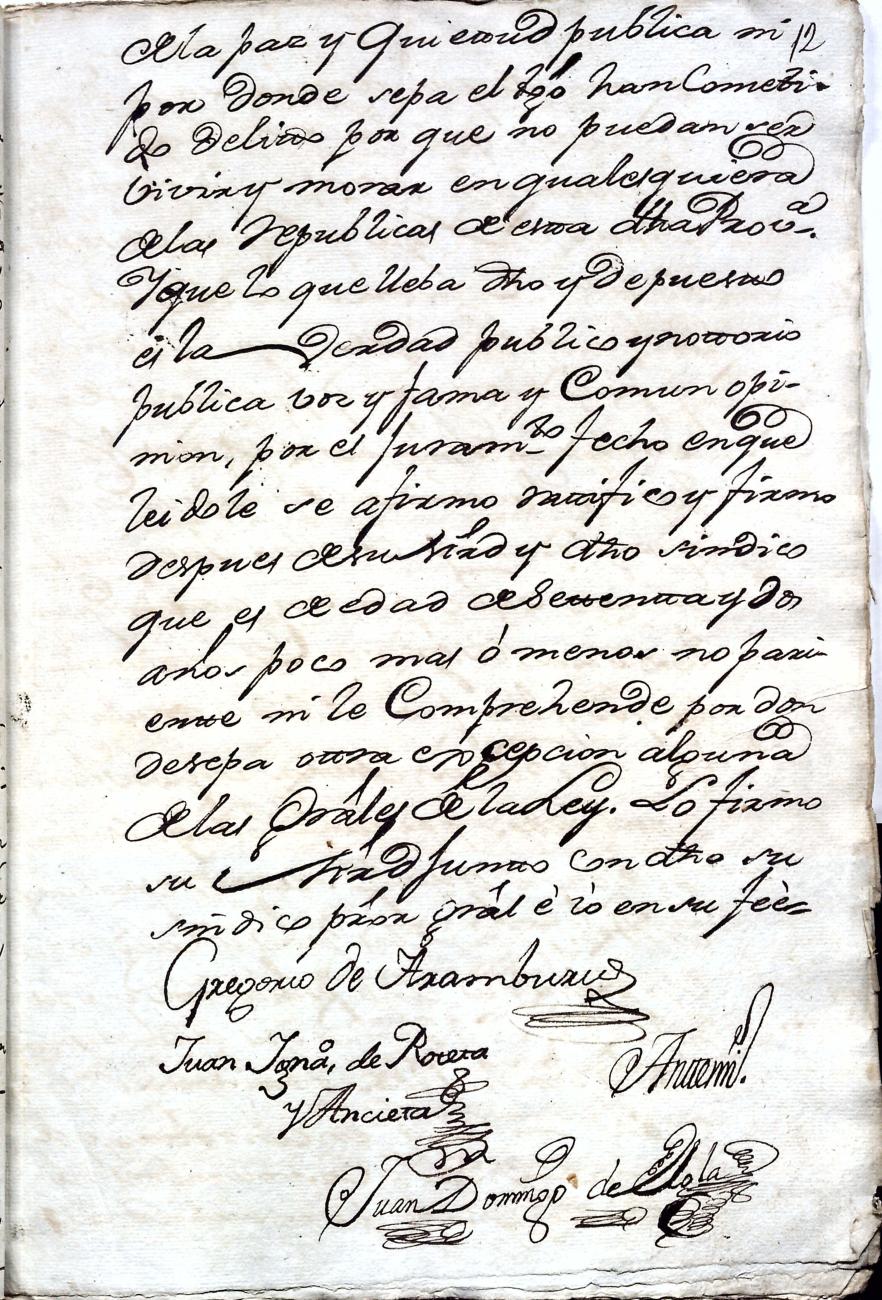 de la paz y Quietud publica ni 12
por donde sepa el tgo han Cometi-
do delitto por que no puedan ser
vivir y morar en qualesquiera
de las republicas de esta dha Prova.
Y que lo que lleba dho y depuesto
es la Verdad publico y nottorio
publica voz y fama y Comun opi-
nion, por el Juramto fecho en que
leidole se afirmo rattifico y firmo
despues de su Mrd y dho sindico
que es de edad de settentta y dos
años poco mas ó menos no pari-
ente ni le Comprehende por don
de sepa ottra excepcion alguna
de las Grâles de la Ley. Lo firmo
su Mrd Juntto con dho su
sindico prôr grâl è ÿo en su feè=
Gregorio de Aramburu
Juan Igna. de Roteta
y Ancieta
Antemi.
Juan Domingo de Elola